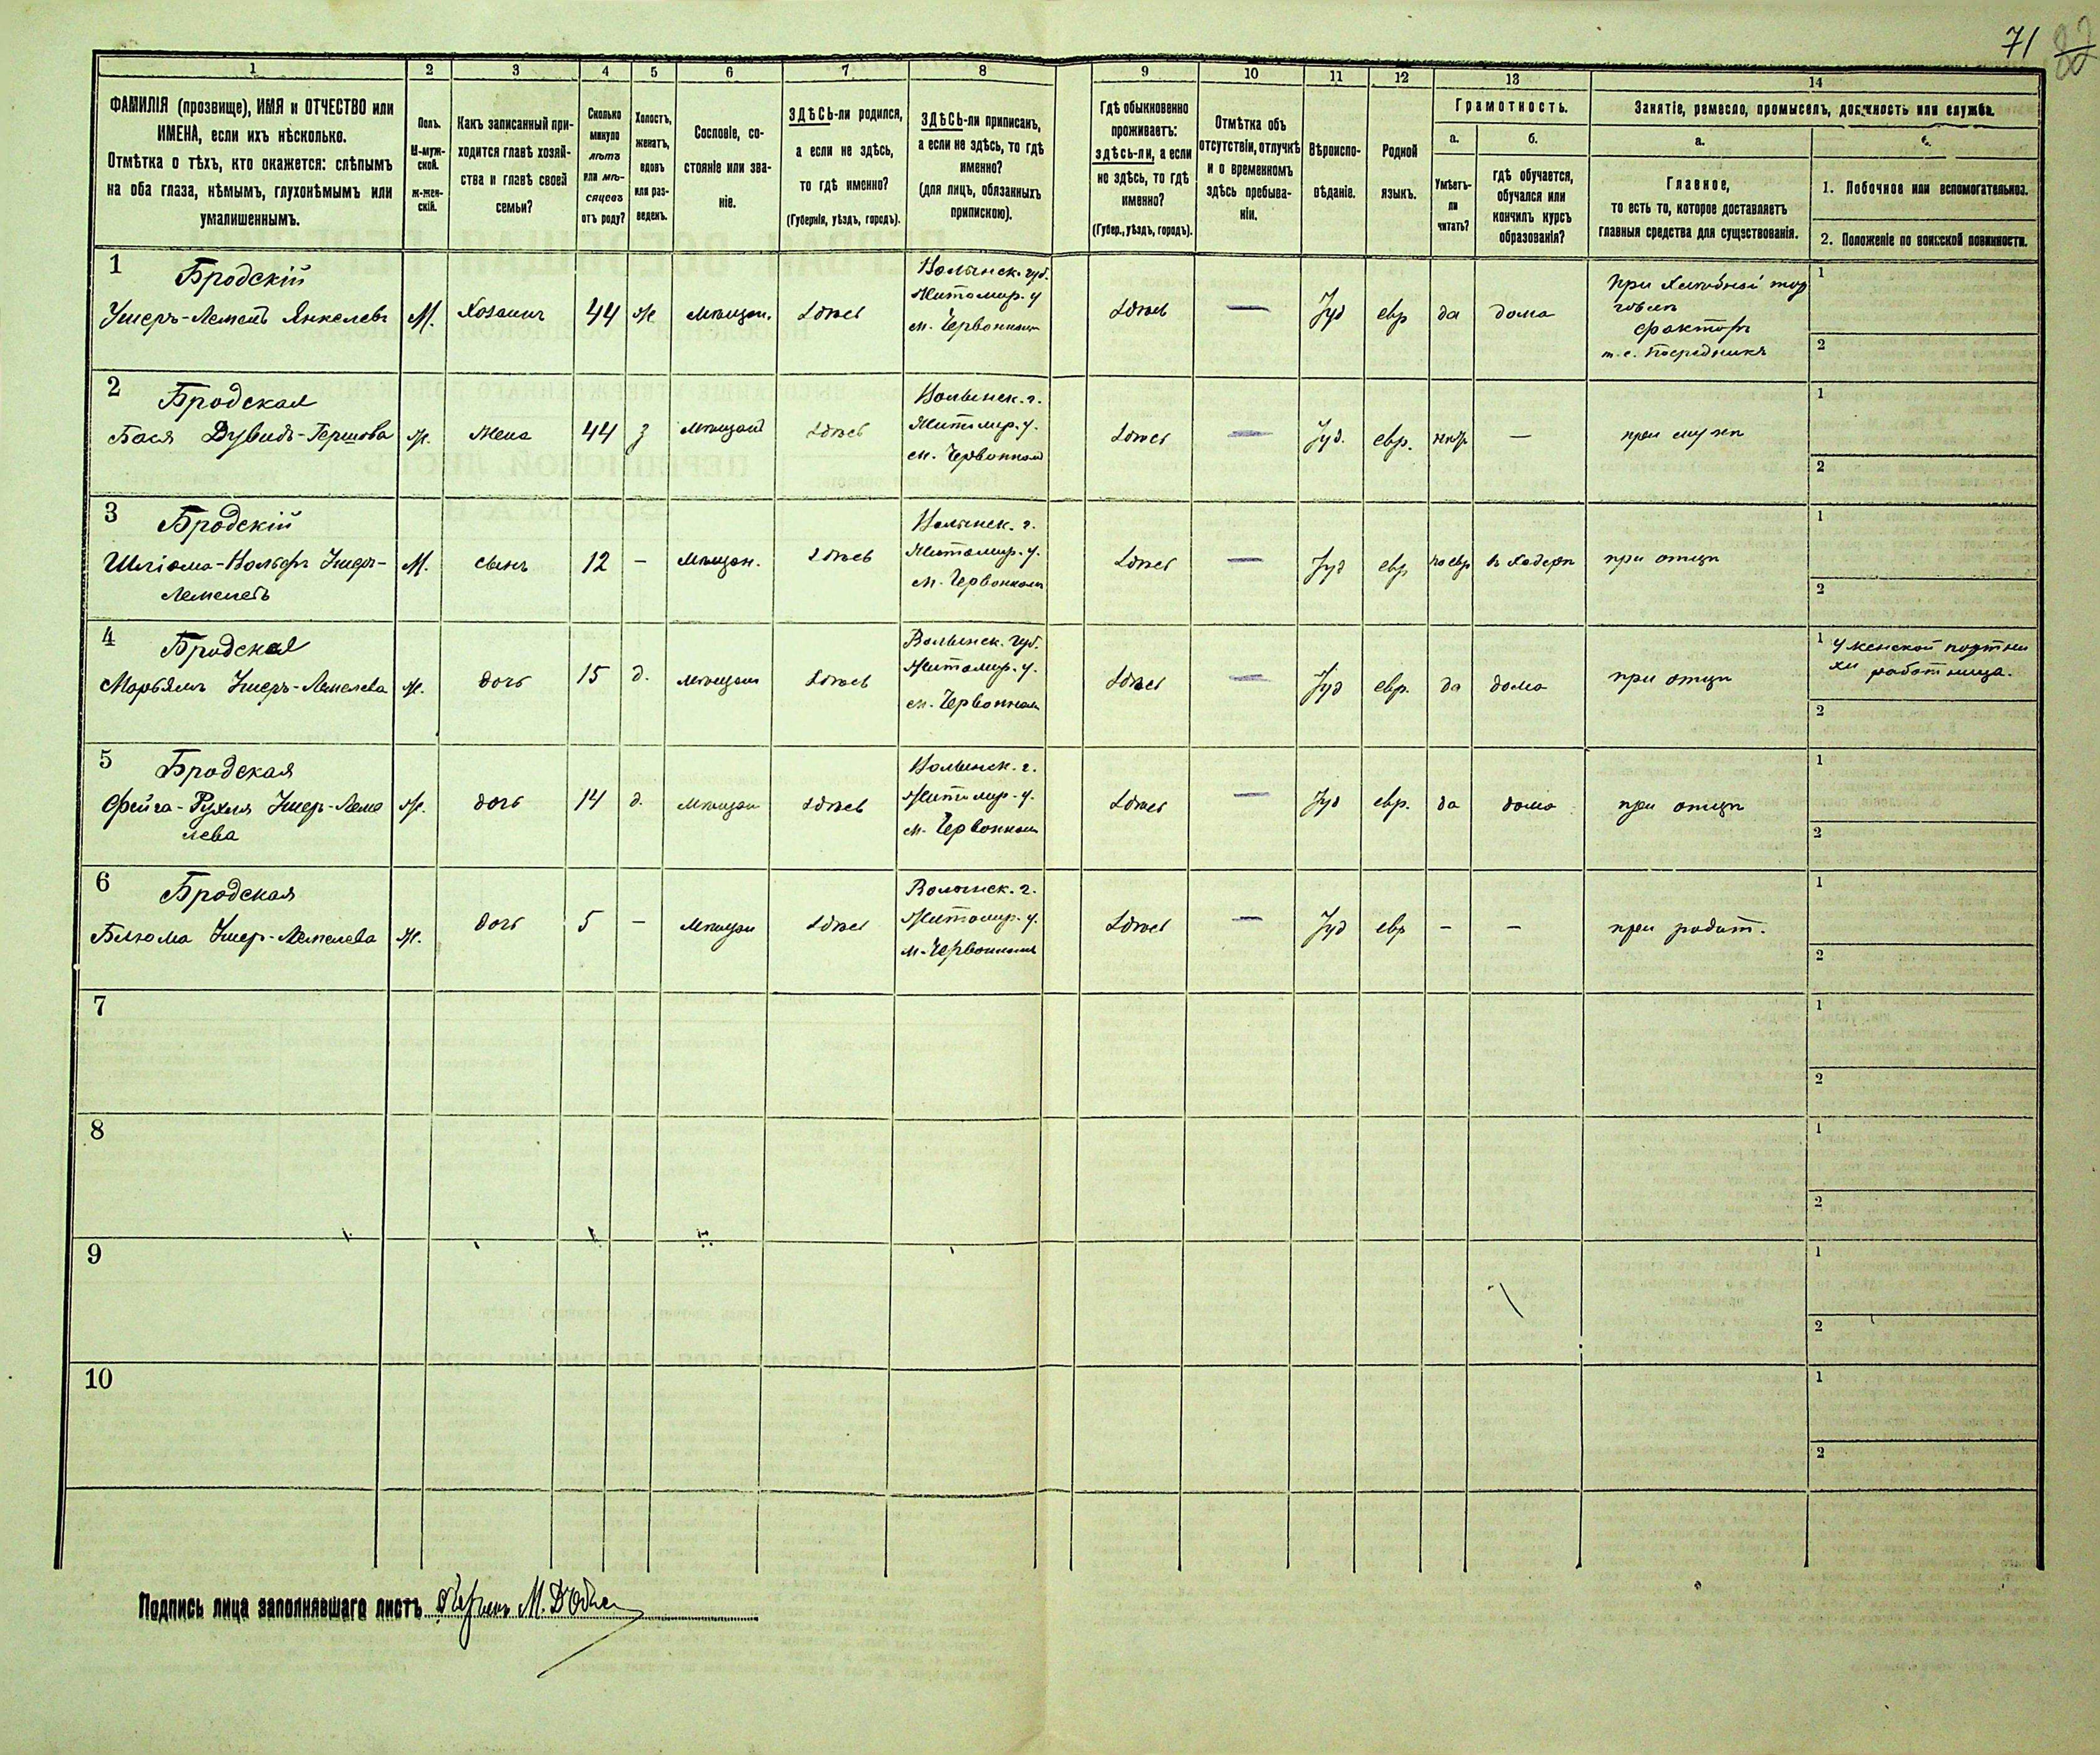 71 82
1 2 3 4 5 6 7 8 9 10 11 12 13 14
ФАМИЛІЯ (прозвище), ИМЯ и ОТЧЕСТВО или
ИМЕНА, если ихъ нѣсколько.
Отмѣтка о тѣхъ, кто окажется: слѣпымъ
на оба глаза, нѣмымъ, глухонѣмымъ или
умалишеннымъ.
Полъ.
М-муж-
ской.
ж-жен-
скій.
Какъ записанный при-
ходится главѣ хозяй-
ства и главѣ своей
семьи?
Сколько
минуло
лѣтъ
или мѣ-
сяцевъ
отъ роду?
Холостъ,
женатъ,
вдовъ
или раз-
веденъ.
Сословіе, со-
стояніе или зва-
ніе.
ЗДѢСЬ-ли родился,
а если не здѣсь,
то гдѣ именно?
(Губернія, уѣздъ, городъ).
ЗДѢСЬ-ли приписанъ,
а если не здѣсь, то гдѣ
именно?
(для лицъ, обязанныхъ
припискою).
Гдѣ обыкновенно
проживаетъ:
здѣсь-ли, а если
не здѣсь, то гдѣ
именно?
(Губер., уѣздъ, городъ).
Отмѣтка объ
отсутствіи, отлучкѣ
и о временномъ
здѣсь пребыва-
ніи.
Вѣроиспо-
вѣданіе.
Родной
языкъ.
Грамотность.
а.
Умѣетъ-
ли
читать?
б.
гдѣ обучается,
обучался или
кончилъ курсъ
образованія?
Занятіе, ремесло, промыселъ, должность или служба.
а.
Главное,
то есть то, которое доставляетъ
главныя средства для существованія.
1. Побочное или вспомогательное.
2. Положеніе по воинской повинности.
1 Бродскій
Ушеръ-Лемель Янкелевъ М. Хозяинъ 44 ж мѣщан. здѣсь
Волынск. губ.
Житомир. у
м. Червонномъ
здѣсь — Іуд евр да дома
при хлебной тор
говлѣ
факторъ
т. е. посредникъ
1
2
2 Бродская
Бася Дувидъ-Гершова ж. жена 44 з мѣщан здѣсь
Волынск. г.
Житомир. у.
м. Червонномъ
здѣсь — Іуд. евр. нѣтъ — при мужѣ
1
2
3 Бродскій
Шліома-Вольфъ Ушеръ-
Лемелевъ
М. сынъ 12 — мѣщан. здѣсь
Волынск. г.
Житомир. у.
м. Червонномъ
здѣсь — Іуд евр по евр въ хедерѣ при отцѣ
1
2
4 Бродская
Марьямъ Ушеръ-Лемелева ж. дочь 15 д. мѣщан здѣсь
Волынск. губ.
Житомир. у.
м. Червонномъ
здѣсь — Іуд евр. да дома при отцѣ
1 у женской портни
хи работница.
2
5 Бродская
Фейга-Рухля Ушер-Леме
лева
ж. дочь 14 д. мѣщан здѣсь
Волынск. г.
Житомир. у.
м. Червонномъ
здѣсь — Іуд евр. да дома при отцѣ
1
2
6 Бродская
Блюма Ушер-Лемелева ж. дочь 5 — мѣщан здѣсь
Волынск. г.
Житомир. у.
м. Червонномъ
здѣсь — Іуд евр — — при родит.
1
2
7
1
2
8
1
2
9
1
2
10
1
2
Подпись лица заполнявшаго листъ